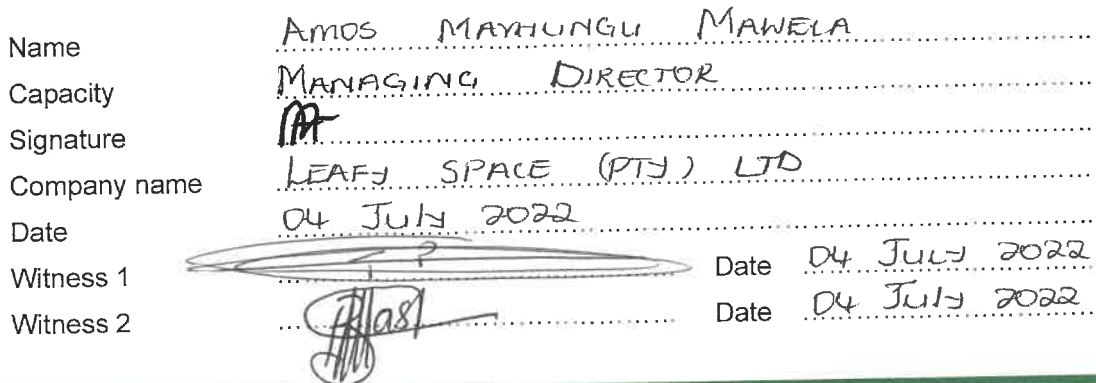 Name AMOS MAYHUNGU MAWELA
Capacity MANAGING DIRECTOR
Signature
Company name LEAFY SPACE (PTY) LTD
Date 04 July 2022
Witness 1 Date 04 JULY 2022
Witness 2 Date 04 July 2022